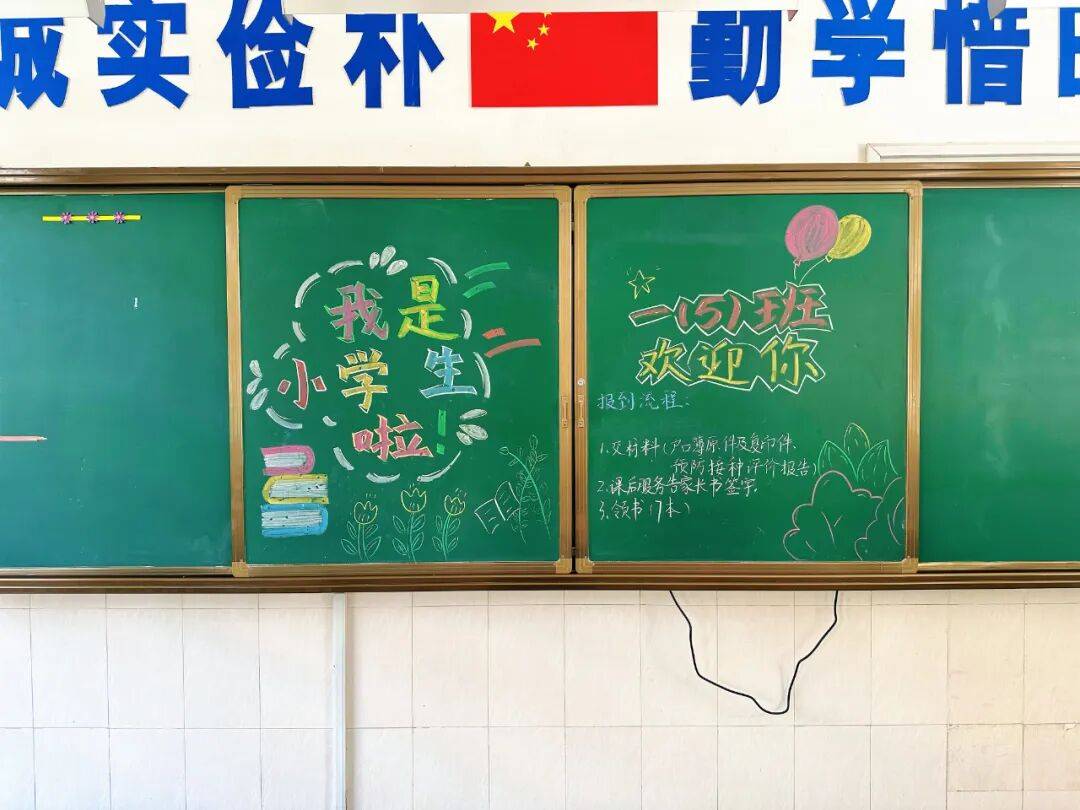 诚实俭朴 勤学惜
我是
小学生
啦!
一(5)班
欢迎你
报到流程:
1.交材料(户口薄原件及复印件、
预防接种评价报告)
2.课后服务告家长书签字,
3.领书(7本)